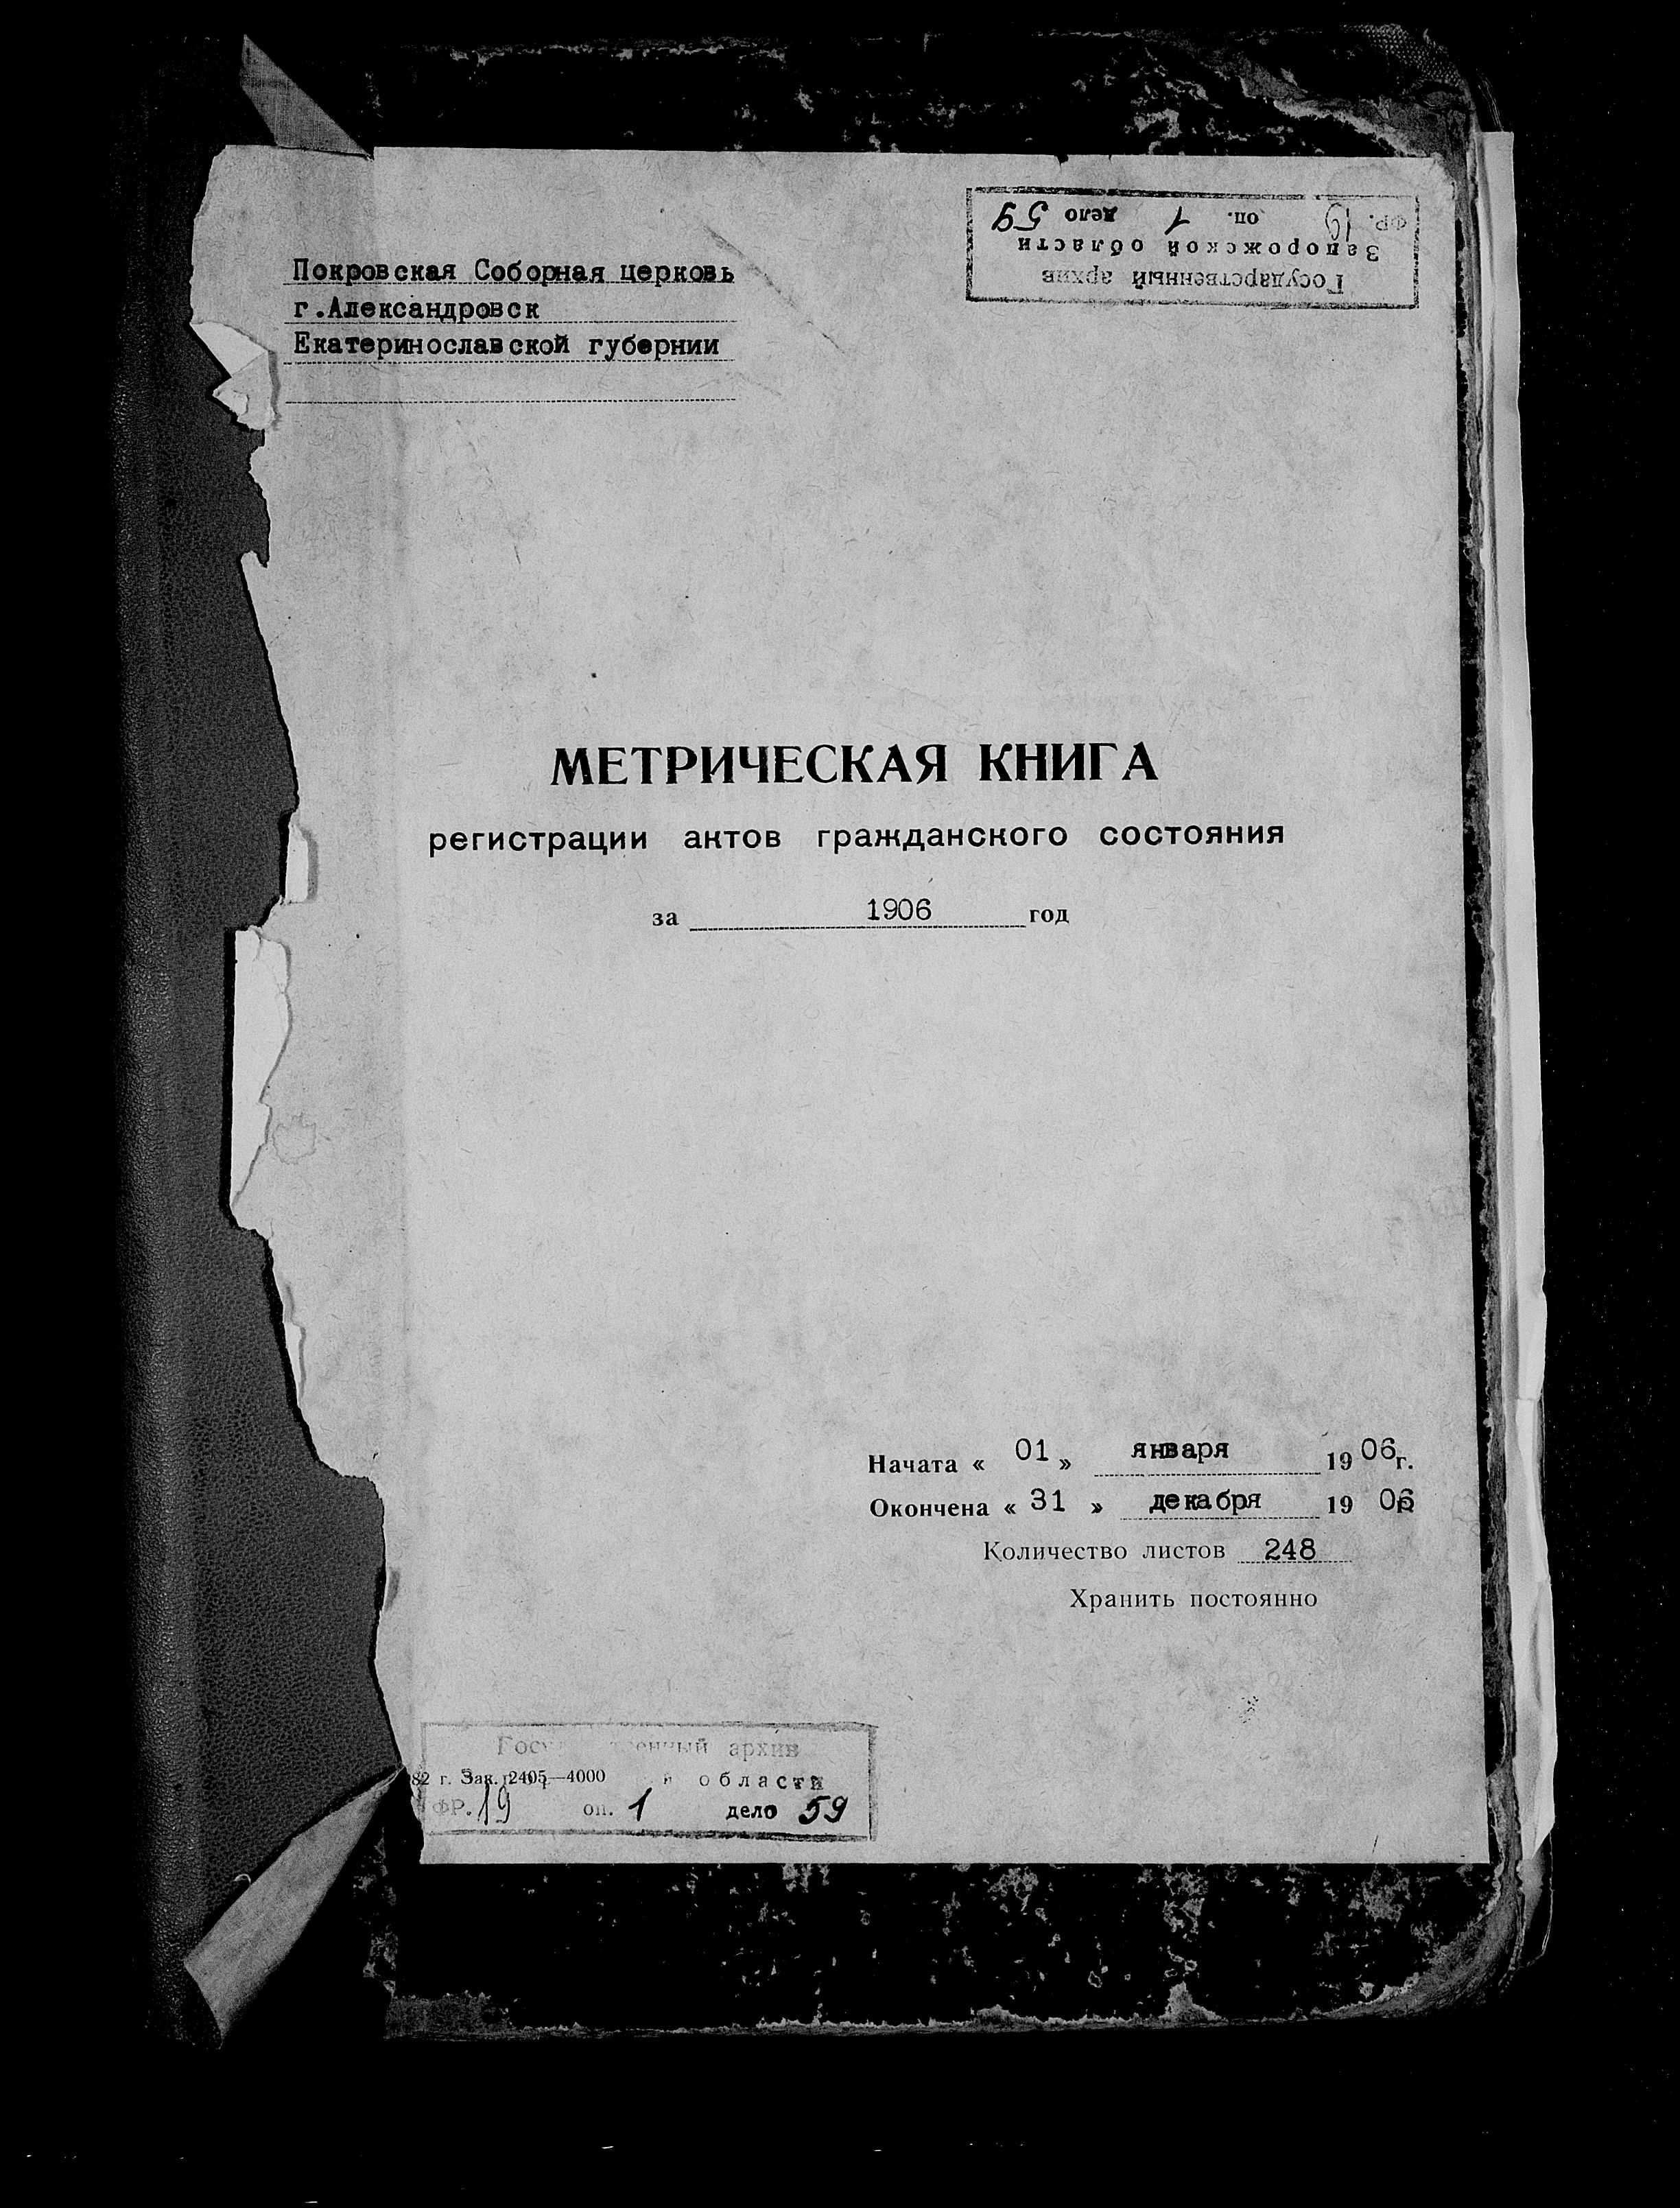 Покровская Соборная церковь
г.Александровск
Екатеринославской губернии
Государственный архив
Запорожской области
ФР. 19 оп. 1 дело 59
МЕТРИЧЕСКАЯ КНИГА
регистрации актов гражданского состояния
за 1906 год
Начата « 01 » января 19 06 г.
Окончена « 31 » декабря 19 06 г.
Количество листов 248
Хранить постоянно
архив
82 г. Зак. 2405—4000
области
ФР. 19 оп. 1 дело 59